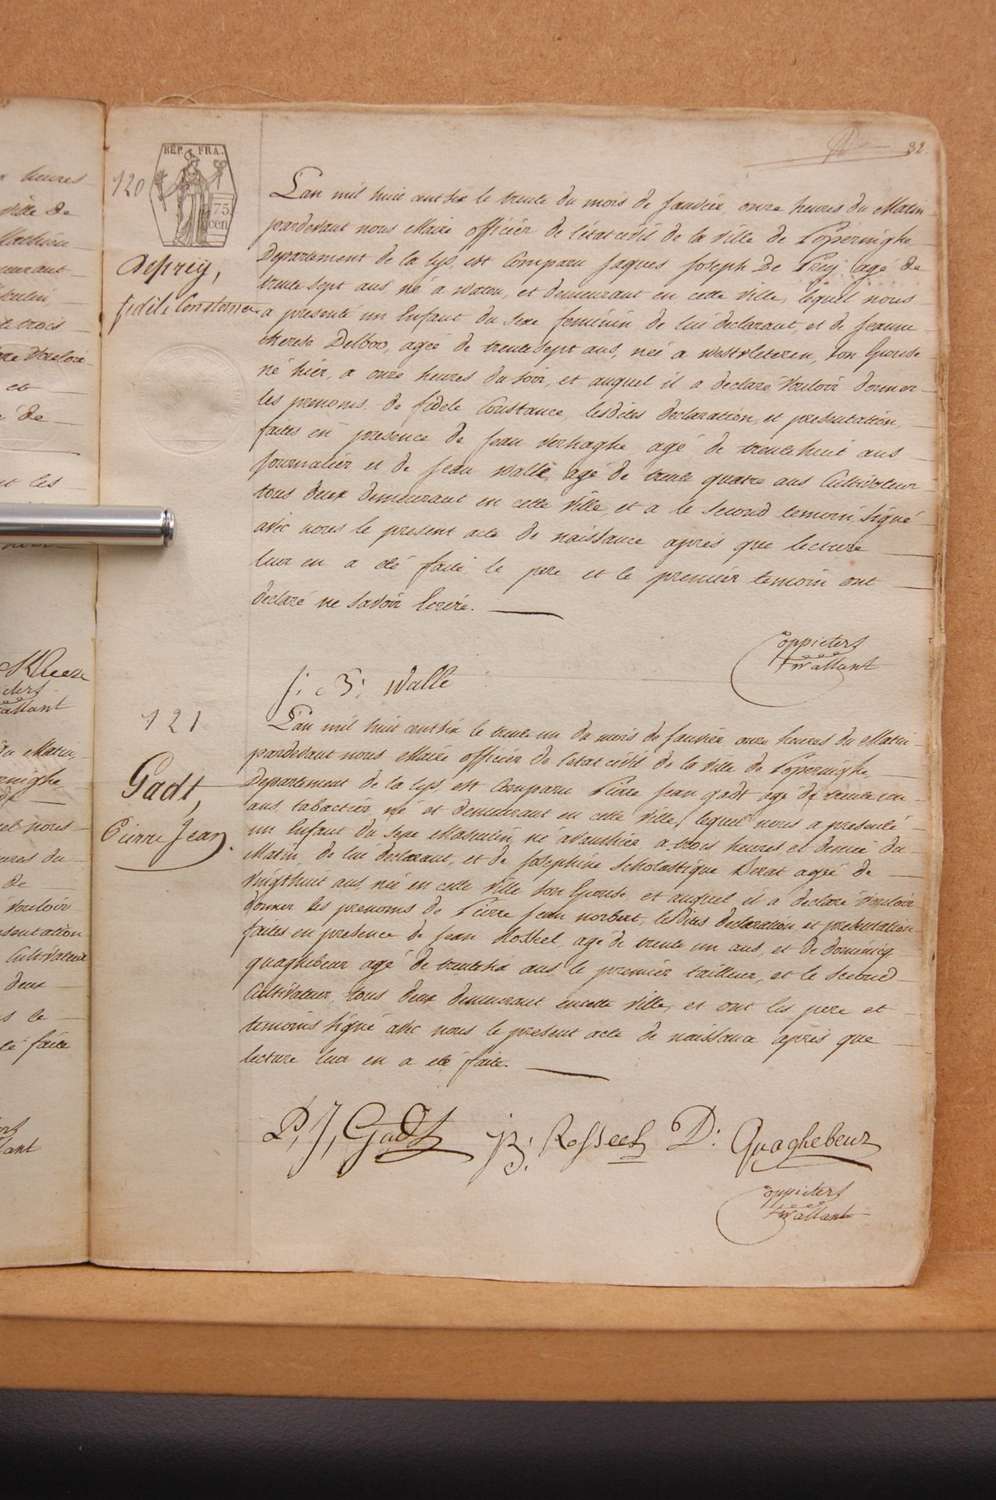 32
120
REP. FRA.
75
cen
Deprey,
fidele Constance
L'an mil huit cent six le trente du mois de Janvier onze heures du Matin
pardevant nous Maire officier de l'état civil de la ville de Poperinghe
Departement de la Lys, est Comparu Jaques Joseph De Prey agé de
trente sept ans né a watou, et demeurant en cette ville, lequel nous
a presente un Enfant du sexe feminin de lui declarant, et de Jeanne
therese Delboo, agée de trente sept ans, née a westvleteren, son Epouse
né hier, a onze heures du soir, et auquel il a declaré vouloir donner
les prenoms de fidele Constance, lesdites declaration et presentation
faites en presence de Jean verhaghe agé de trente huit ans
Journalier et de Jean walle agé de trente quatre ans Cultivateur
tous deux demeurant en cette ville et a le second temoin signé
avec nous le present acte de naissance après que lecture
leur en a été faite, le pere et le premier temoin ont
declaré ne savoir Ecrire.
Coppieters
twallant
J: B: walle
121
Gadt,
Pierre Jean.
L'an mil huit cent six le trente un du mois de Janvier onze heures du Matin
pardevant nous Maire officier de l'état civil de la ville de Poperinghe
Departement de la Lys est Comparu Pierre Jean gadt agé de trente un
ans, tabactier, né et demeurant en cette ville, lequel nous a presenté
un Enfant du sexe Masculin, né avanthier a trois heures et demie du
Matin, de lui declarant, et de Josephine Scholastique agée de
vingthuit ans née en cette ville son Epouse et auquel il a declaré vouloir
donner les prenoms de Pierre Jean norbert, lesdites declaration et presentation
faites en presence de Jean Rosseel, agé de trente un ans, et de dominicq
quaghebeur agé de trente six ans le premier tailleur, et le second
Cultivateur, tous deux demeurant encette ville, et ont les pere et
temoins signé avec nous le present acte de naissance après que
lecture leur en a été faite.
P, J, Gadt JB: Rosseel D: Quaghebeur
Coppieters
twallant